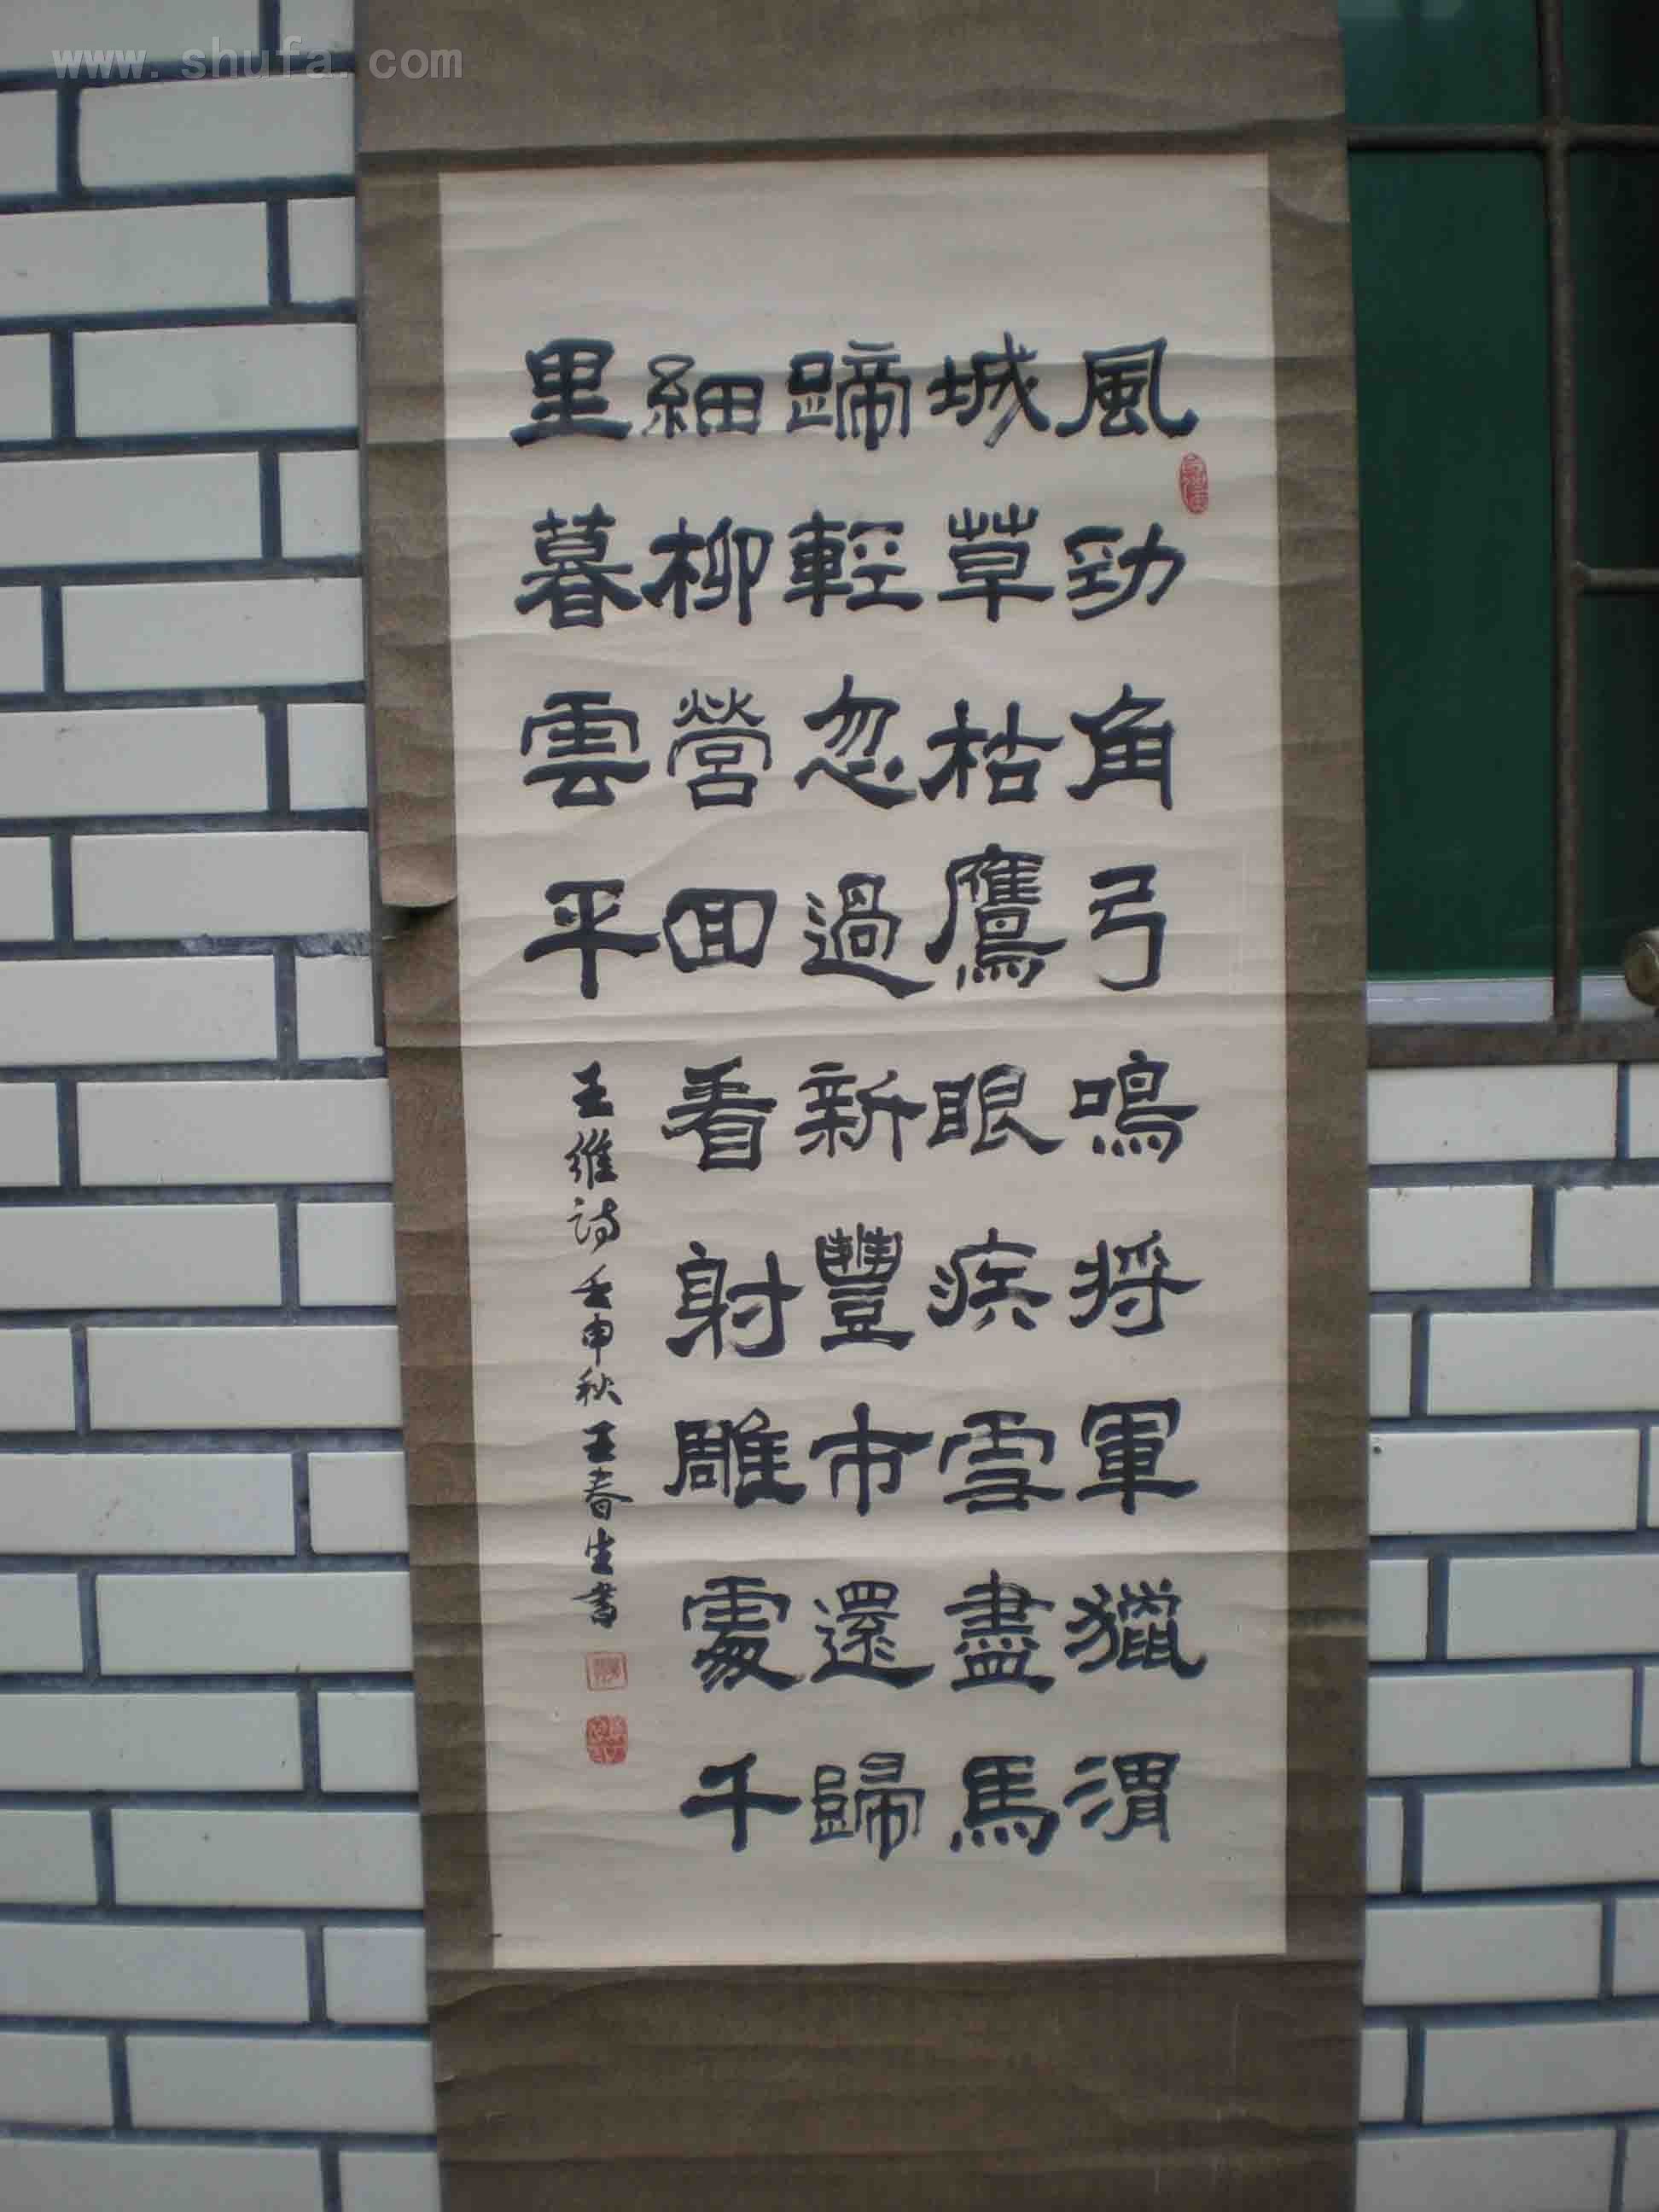 www.shufa.com
風勁角弓鳴將軍獵渭
城草枯鷹眼疾雪盡馬
蹄輕忽過新豐市還歸
細柳營回看射雕處千
里暮雲平
王維詩壬申秋王春生書